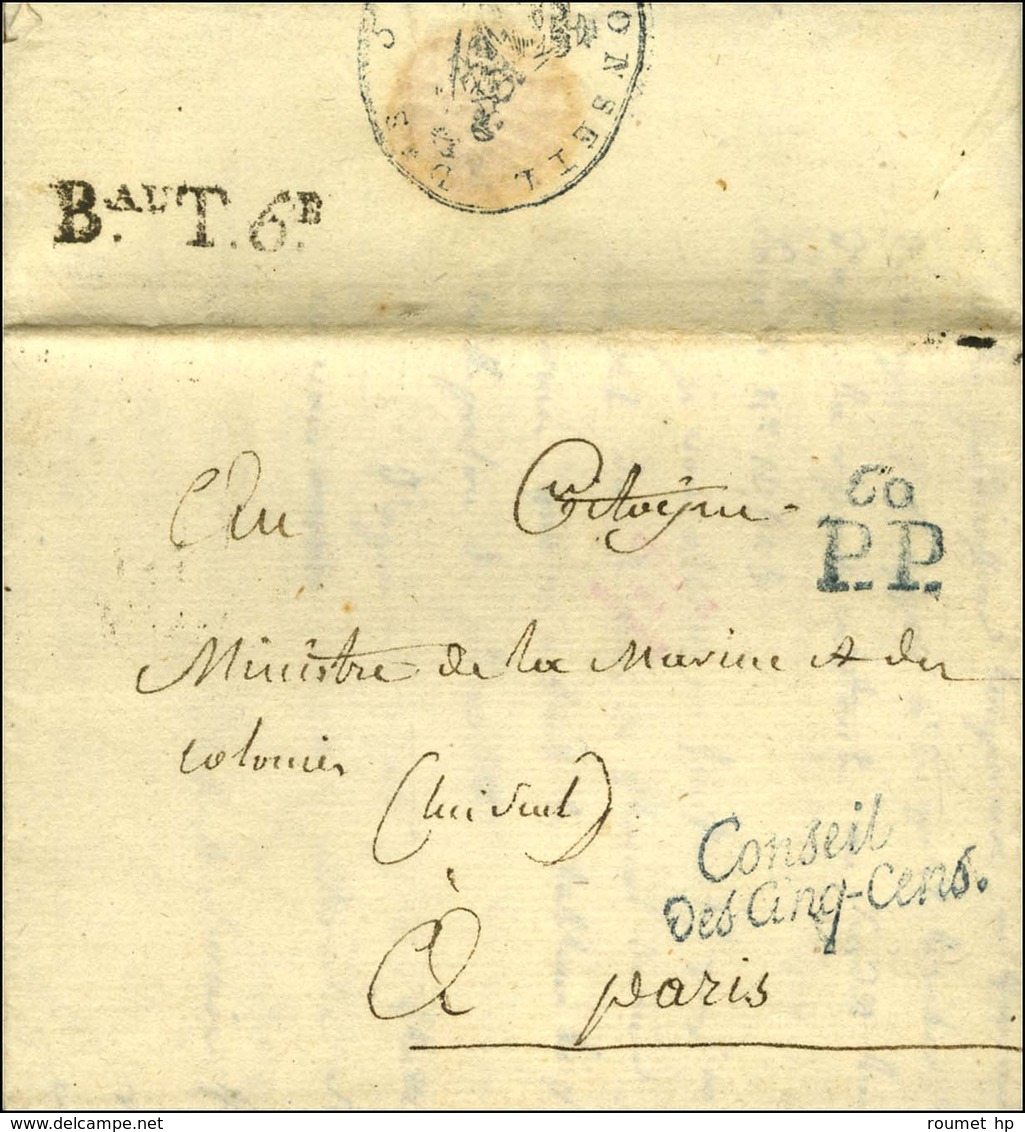 CONSEIL DES C
B.AU T. 6.E
Au Citoyen
60
P.P.
Ministre de la Marine et des
colonies
(lui seul)
Conseil
Des Cinq-Cens.
à paris
roumet hp